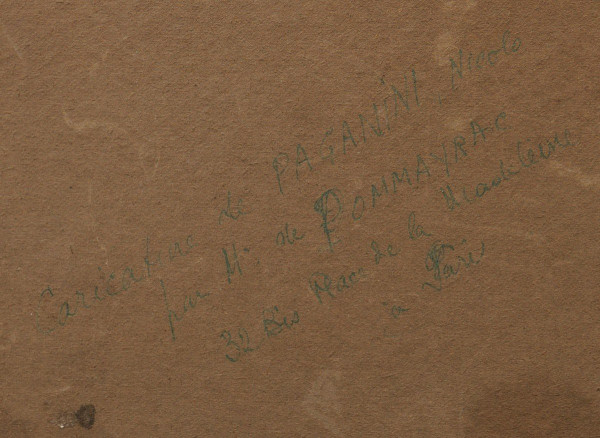 Caricature de PAGANINI, Nicolo
par Mr de POMMAYRAC
32 bis Place de la Madeleine
à Paris